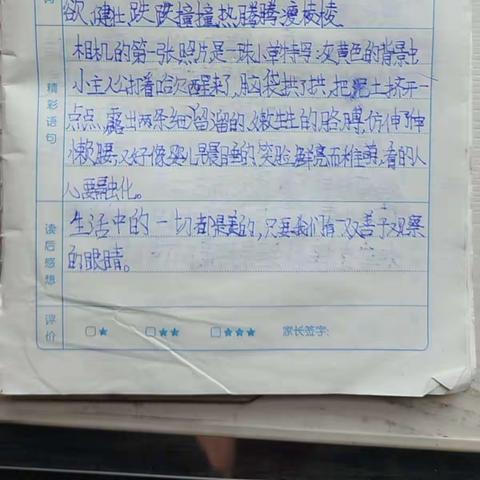 欲、健壮 跌跌撞撞 热腾腾 瘦棱棱
精彩语句
相机的第一张照片是一珠小草特写:灰黄色的背景虫
小主人公打着哈欠醒来了,脑袋拱了拱,把泥土挤开一
点点,露出两条细溜溜的、嫩生生的胳膊,仿伸了伸
懒腰,又好像婴儿晨睡的笑脸,鲜亮而稚萌,看的人
心要融化。
读后感想
生活中的一切都是美的,只要我们有一双善于观察
的眼睛。
评价
□★ □★★ □★★★ 家长签字: